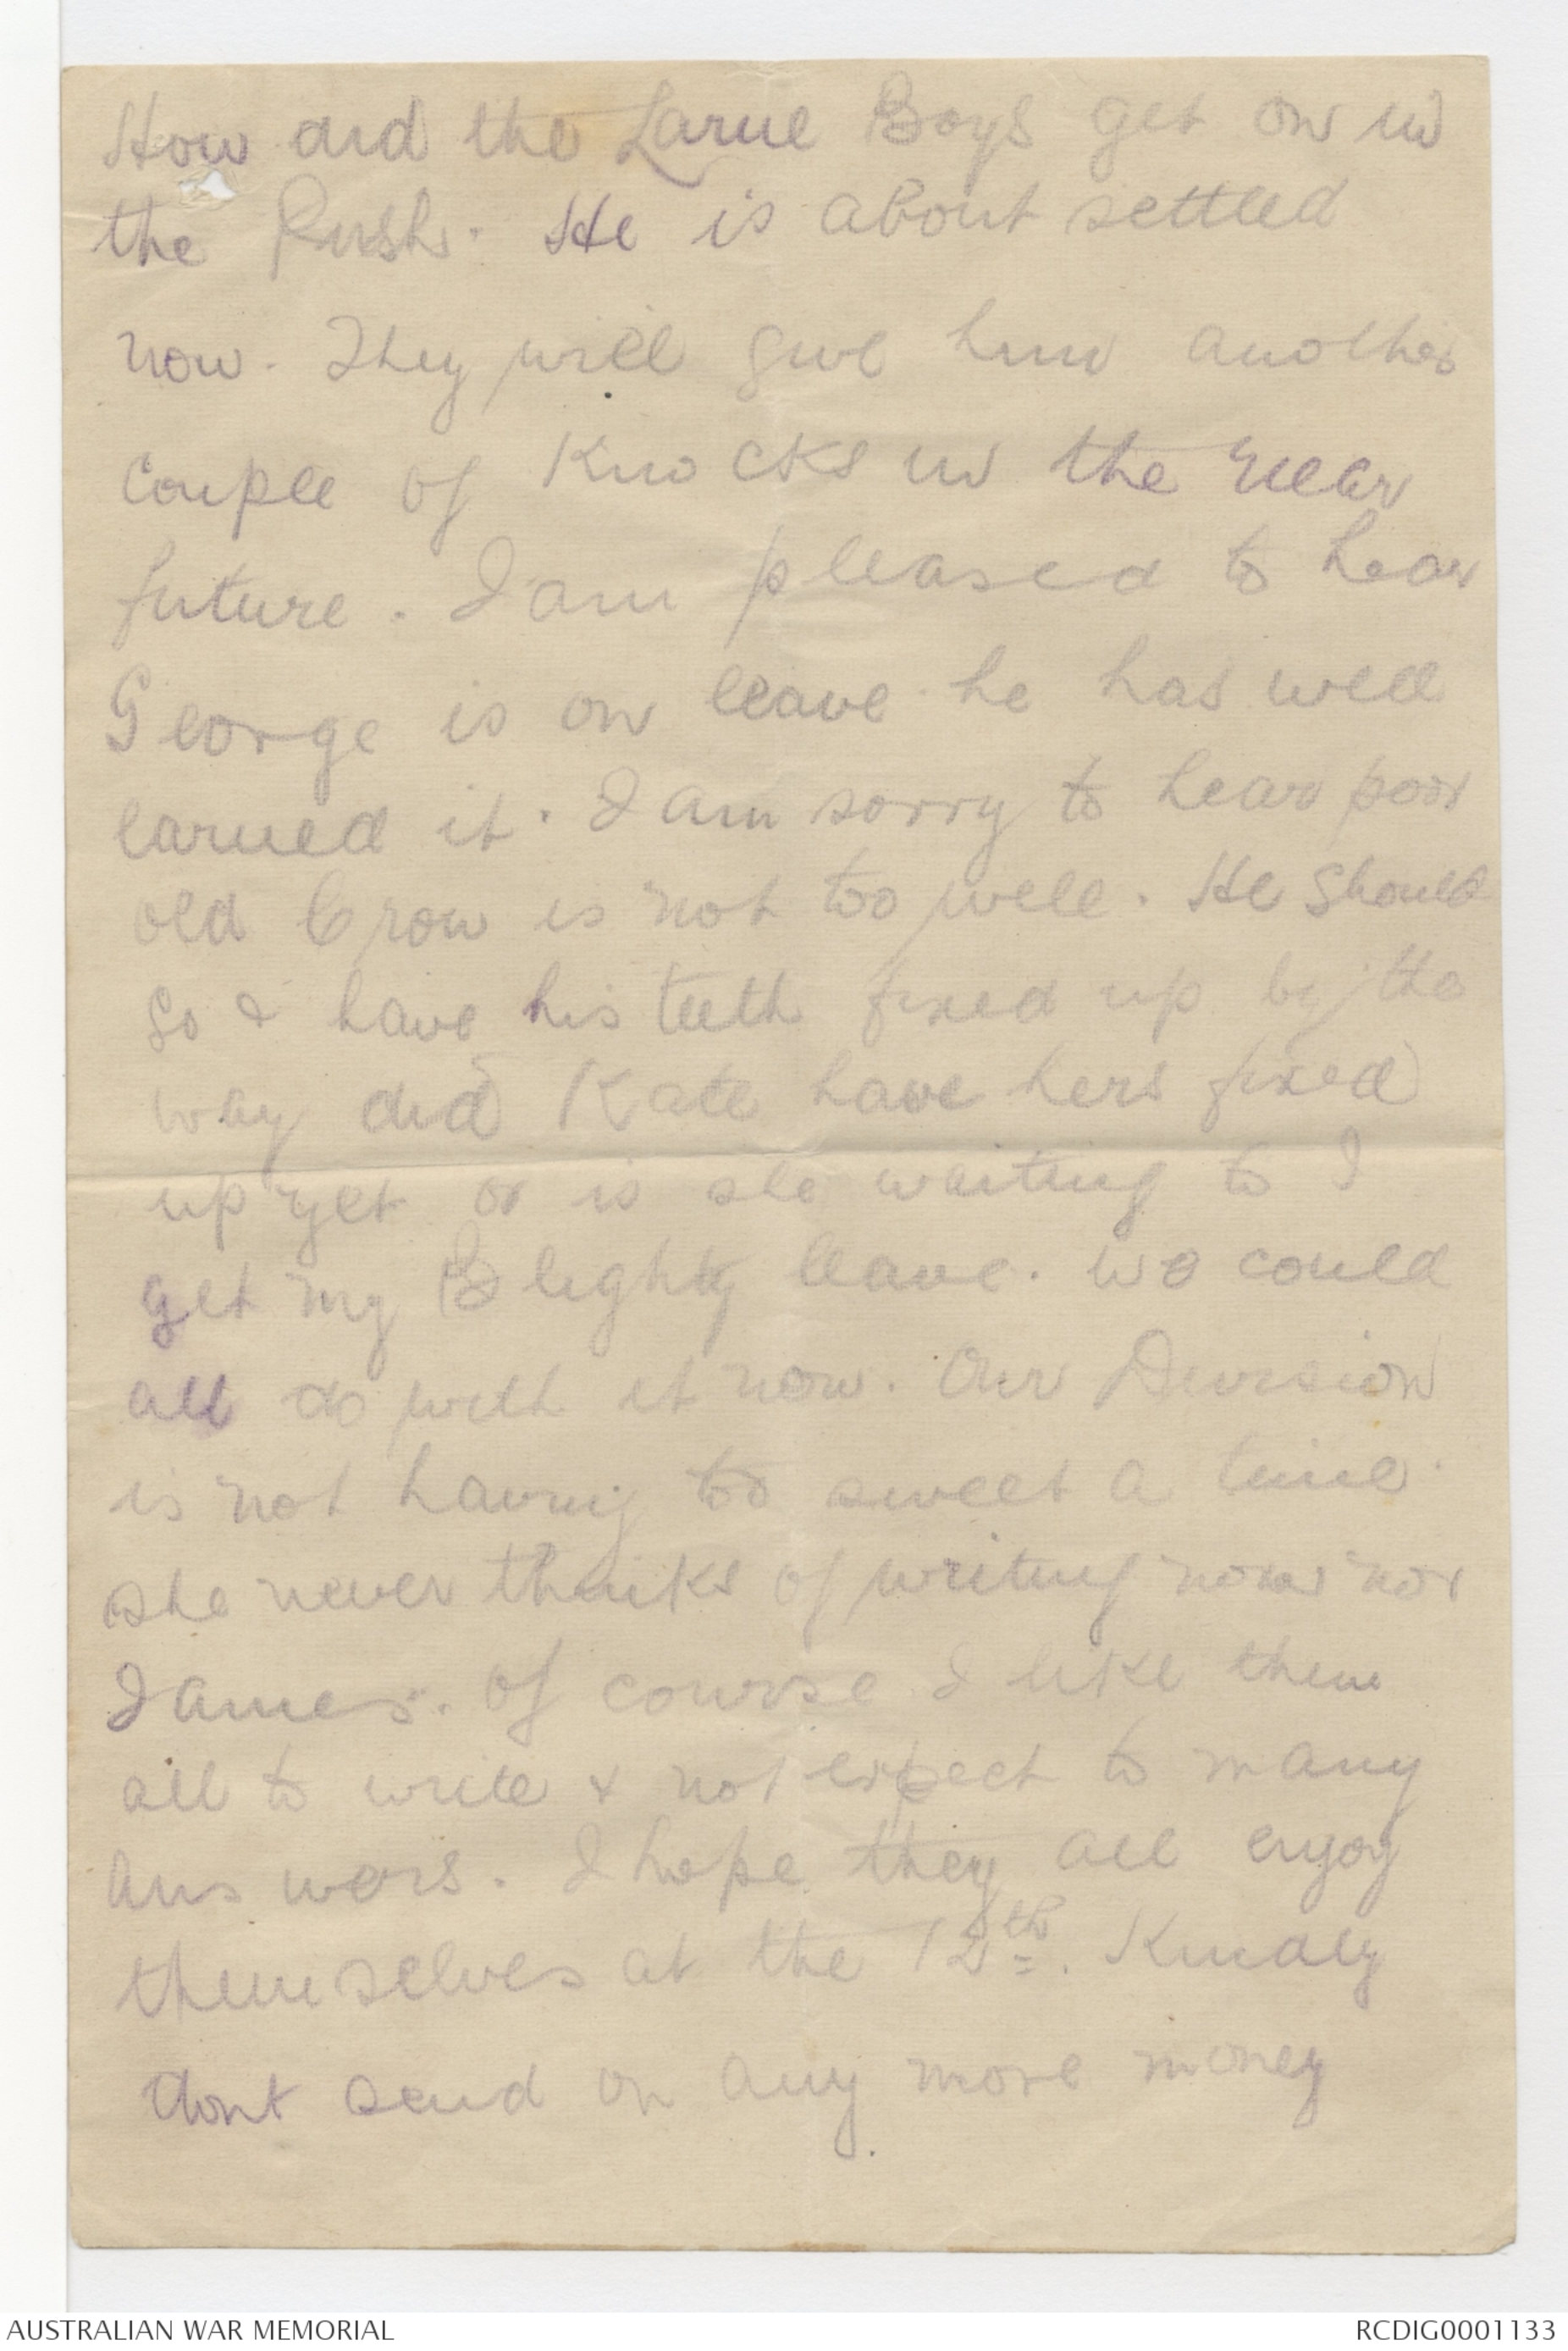 How did the Larne Boys get on in
the Push. He is about settled
now. They will give him another
couple of Knocks in the near
future. I am pleased to hear
George is on leave he has well
earned it. I am sorry to hear poor
old Crow is not too well. He should
go & have his teeth fixed up by the
way did Kate have hers fixed
up yet or is she waiting to I
get my Blighty leave. We could
all do with it now. Our Division
is not having too sweet a time.
She never thinks of writing now nor
James. Of course I like them
all to write & not expect to many
answers. I hope they all enjoy
themselves at the 12th. Kindly
dont send on any more money
AUSTRALIAN WAR MEMORIAL
RCDIG0001133